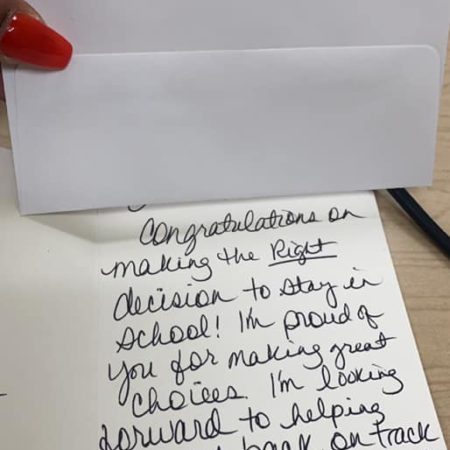 Congratulations on
making the Right
decision to stay in
school! I'm proud of
you for making great
choices. I'm looking
forward to helping
back on track